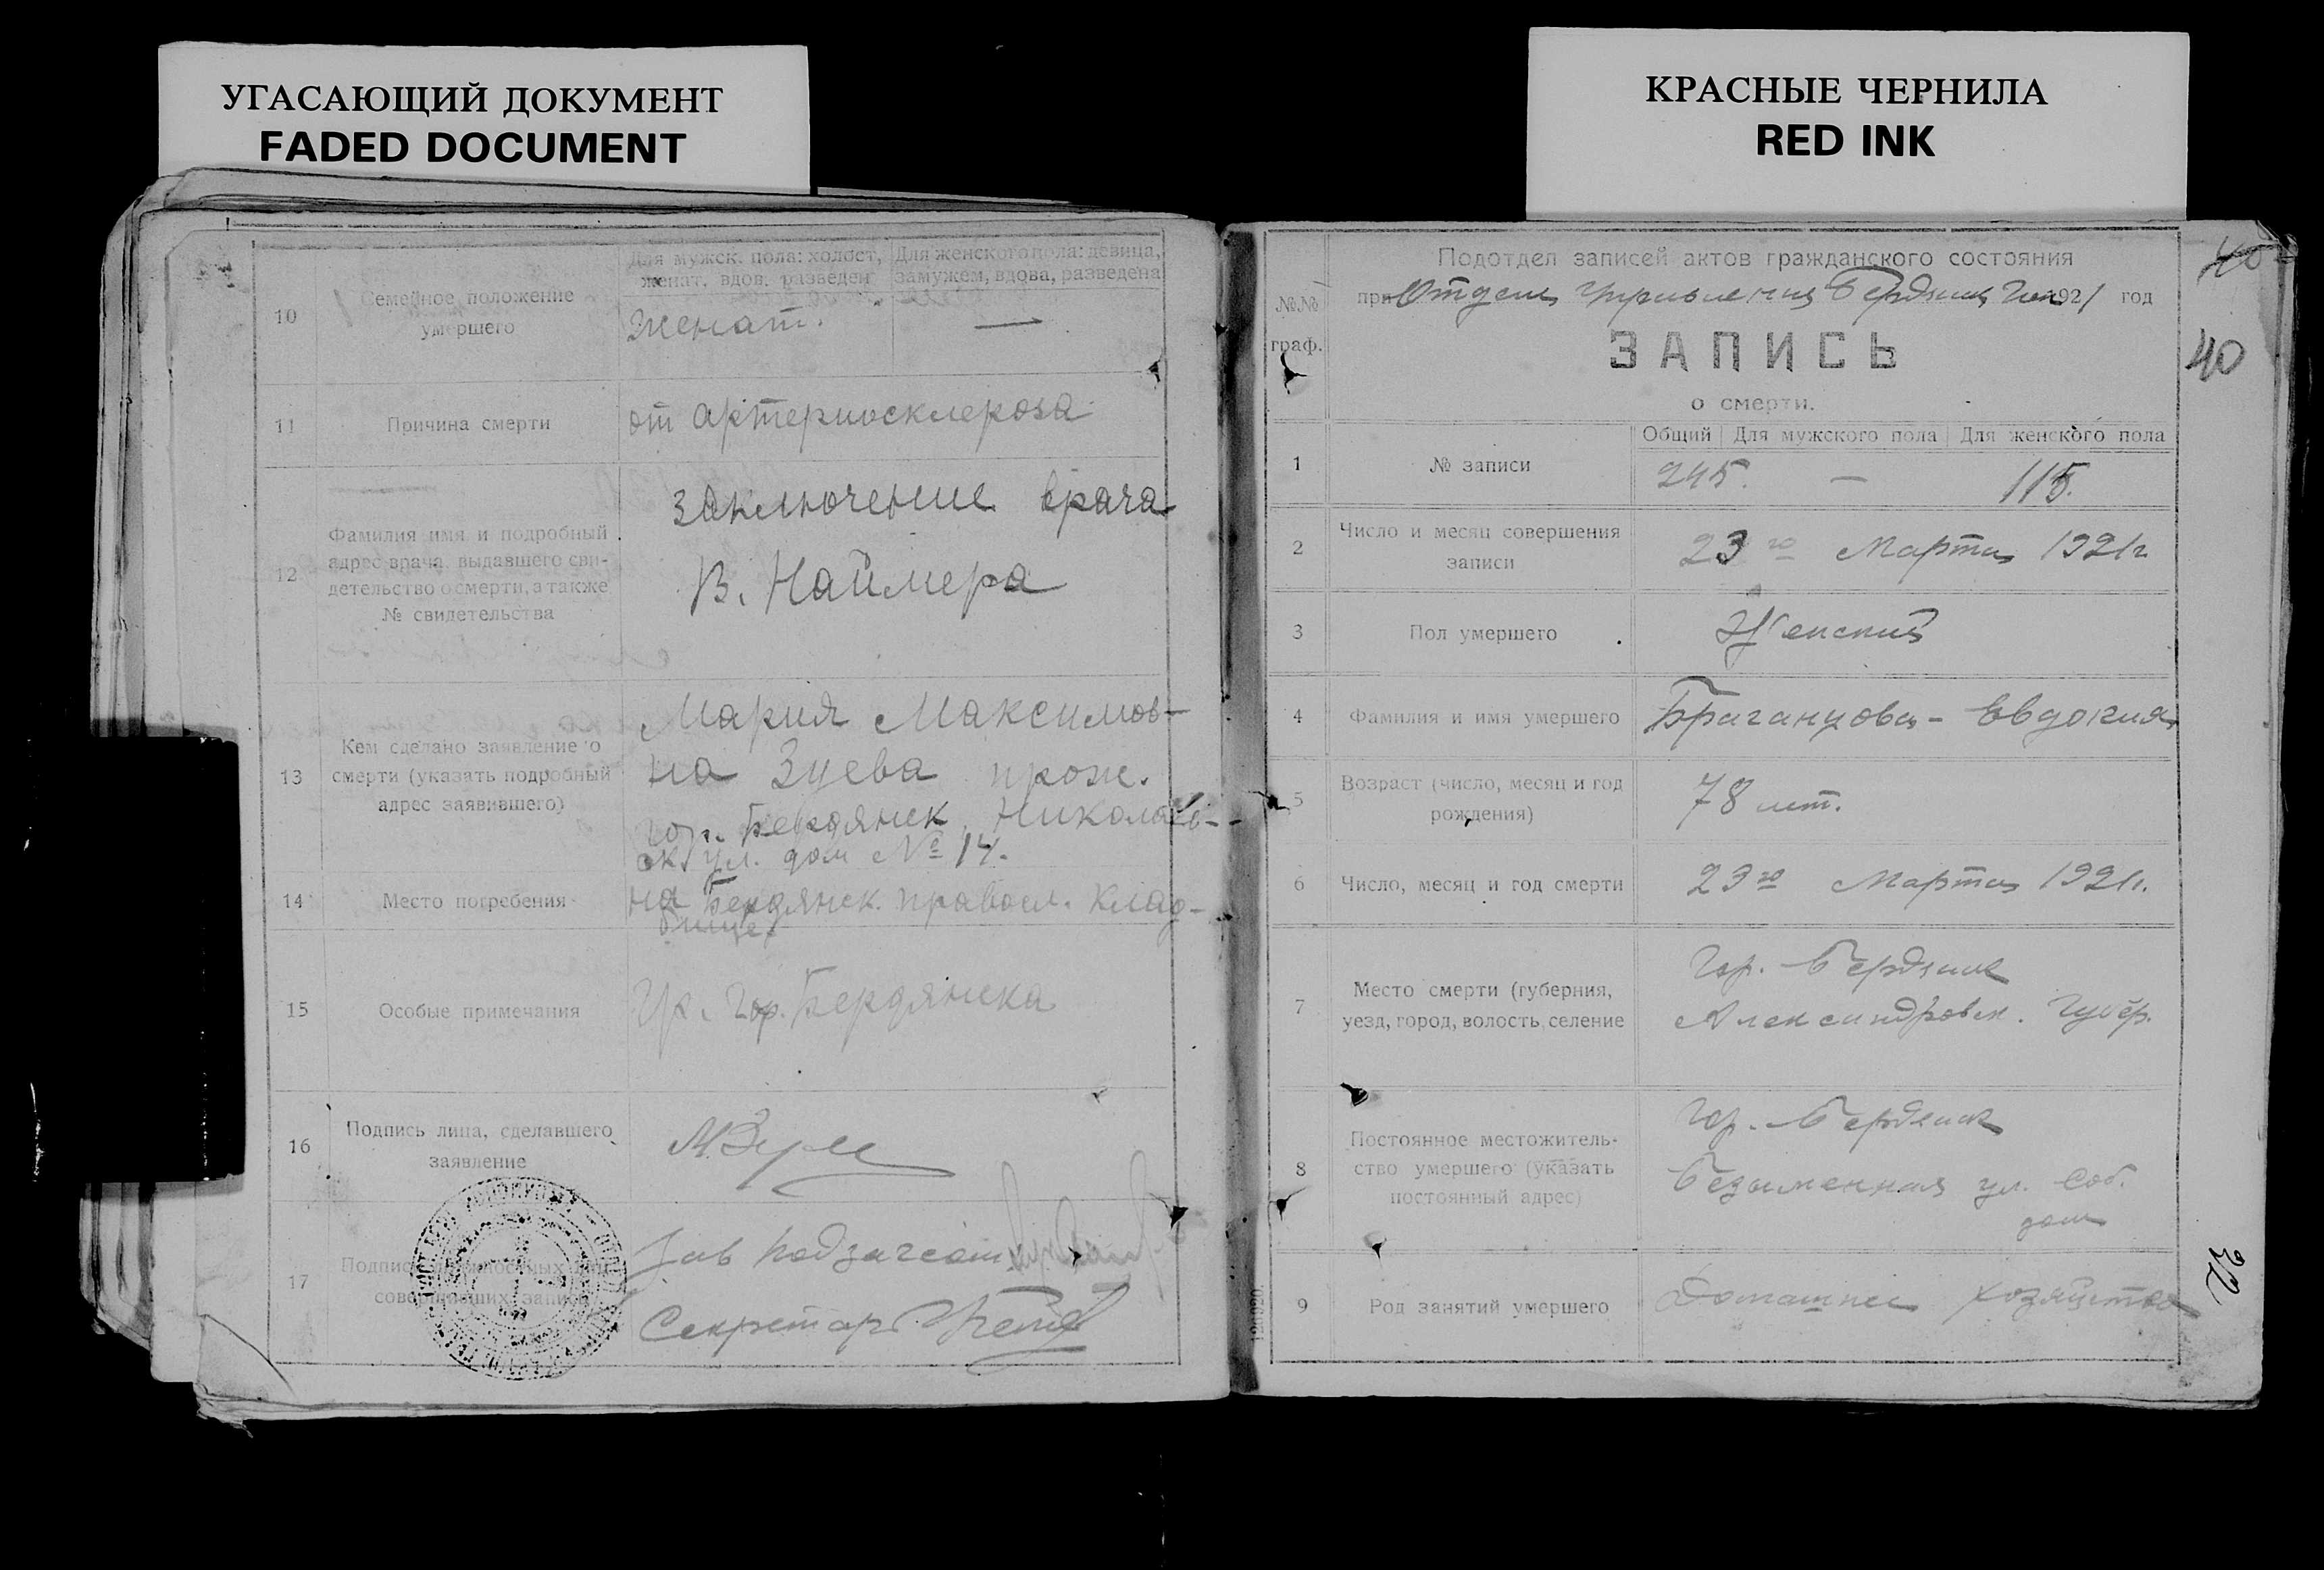 УГАСАЮЩИЙ ДОКУМЕНТ
FADED DOCUMENT
КРАСНЫЕ ЧЕРНИЛА
RED INK
10
Семейное положение
умершего
Для мужск. пола: холост,
женат, вдов, разведен
Для женского пола: девица,
замужем, вдова, разведена
Женат. —
11
Причина смерти
от артериосклероза
12
Фамилия имя и подробный
адрес врача, выдавшего сви-
детельство о смерти, а также
№ свидетельства
Заключение врача
В. Наймера
13
Кем сделано заявление о
смерти (указать подробный
адрес заявившего)
Мария Максимов-
на Зуева прож.
гор. Бердянск, Николаев-
ск. ул. дом № 14.
14
Место погребения
на Бердянск. правосл. клад-
бище
15
Особые примечания
Гр. гор. Бердянска
16
Подпись лица, сделавшего
заявление
М.Зуева
17
Подписи
совершивших запись
Зав
Секретарь
№№
граф.
Подотдел записей актов гражданского состояния
при Отделе Управления Бердянск 1921 год
ЗАПИСЬ
о смерти.
1
№ записи
Общий Для мужского пола Для женского пола
245. — 115.
2
Число и месяц совершения
записи
23го Марта 1921г.
3
Пол умершего
Женский
4
Фамилия и имя умершего
Браганцова - Евдокия
5
Возраст (число, месяц и год
рождения)
78 лет.
6
Число, месяц и год смерти
23го Марта 1921г.
7
Место смерти (губерния,
уезд, город, волость, селение
Гор. Бердянск
Александровск. Губер.
8
Постоянное местожитель-
ство умершего (указать
постоянный адрес)
Гор. Бердянск
Безыменная ул. Соб.
дом
9
Род занятий умершего
Домашнее хозяйство
40
40